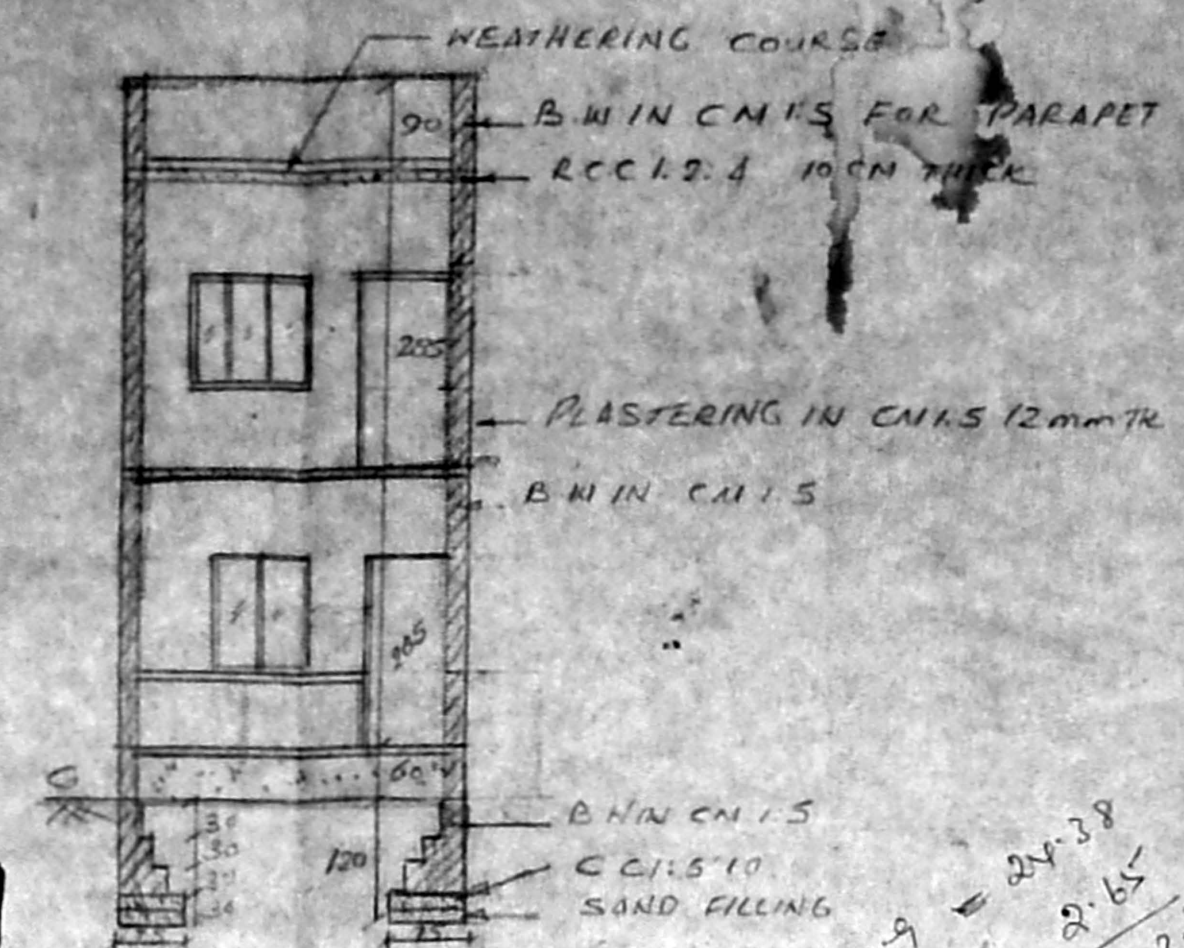 WEATHERING COURSE
90
B.W IN CM 1:5 FOR PARAPET
RCC 1:2:4 10 CM THICK
285
PLASTERING IN CM 1:5 12mm TK
B W IN CM 1:5
285
G
60
30
30
30
30
120
B W IN CM 1:5
C C 1:5:10
SAND FILLING
75
75
24.38
2.65